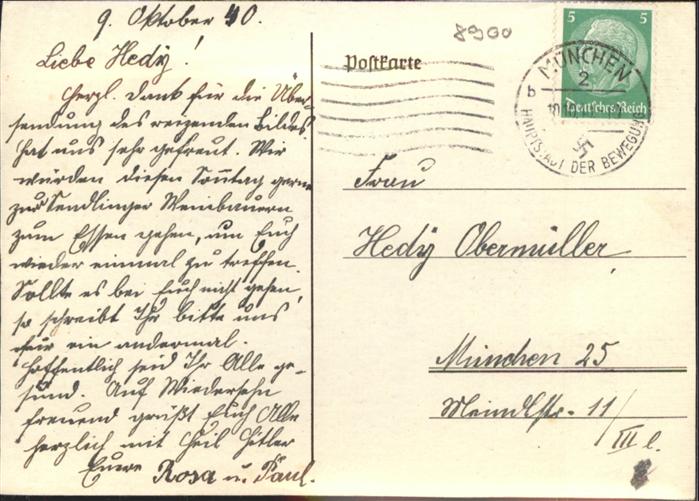 9. Oktober 40.
Liebe Hedÿ!
Herzl. Dank für die Über-
sendung des reizenden Bildes.
Hat uns sehr gefreut. Wir
würden diesen Sonntag gerne
zur Sendlinger Weinbauern
zum Essen gehen, um Euch
wieder einmal zu treffen.
Sollte es bei Euch nicht gehen,
so schreibt Ihr bitte uns
für ein andermal.
Hoffentlich seid Ihr Alle ge-
sund. Auf Wiedersehn
freuend grüßt Euch Alle
herzlich mit Heil Hitler
Eure Rosa u. Paul.
8900
Postkarte
5 5
Deutsches Reich
MÜNCHEN
2
b
HAUPTSTADT DER BEWEGUNG
Frau
Hedÿ Obermüller
München 25
Meindlstr. 11/
III l.